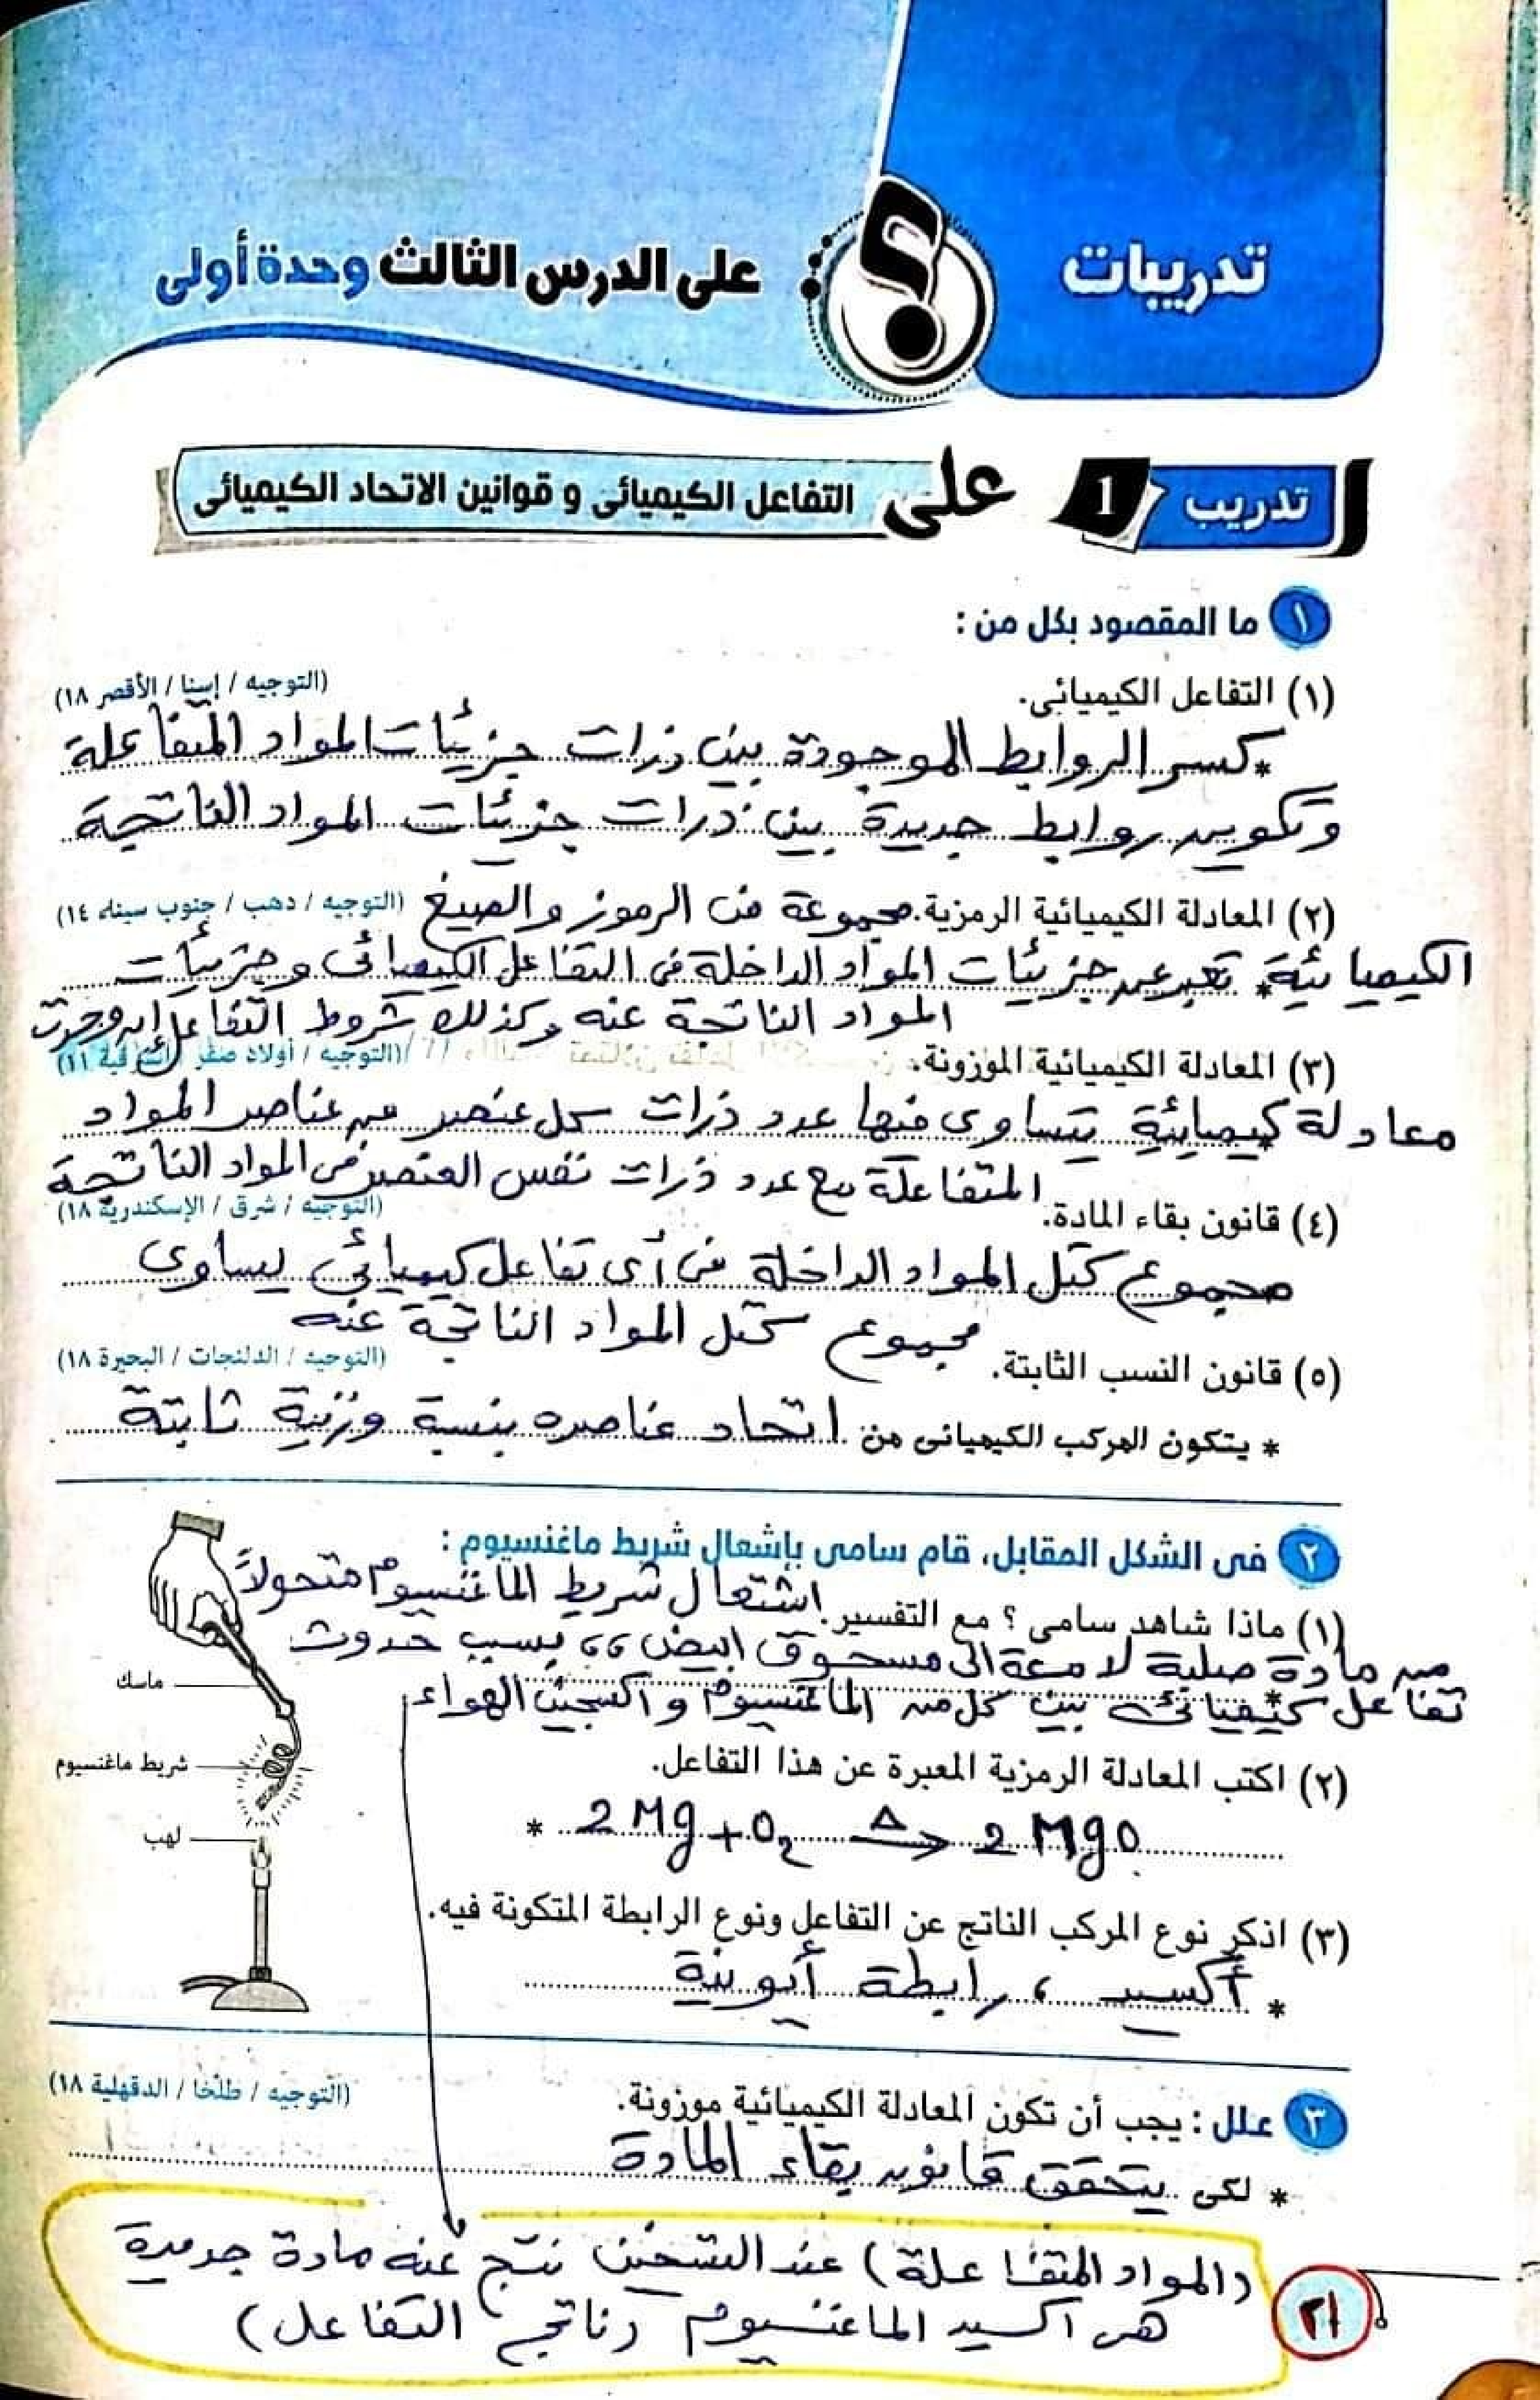 تدريبات على الدرس الثالث وحدة أولى
تدريب 1 على التفاعل الكيميائى و قوانين الاتحاد الكيميائى
١ ما المقصود بكل من :
(١) التفاعل الكيميائى. (التوجيه / إسنا / الأقصر ١٨)
* كسر الروابط الموجودة بين ذرات جزيئات المواد المتفاعلة
وتكوين روابط جديدة بين ذرات جزيئات المواد الناتجة
(٢) المعادلة الكيميائية الرمزية. مجموعة من الرموز والصيغ (التوجيه / دهب / جنوب سيناء ١٤)
الكيميائية * تعبر عن جزيئات المواد الداخلة فى التفاعل الكيميائى وجزيئات
المواد الناتجة عنه وكذلك شروط التفاعل إن وجدت
(٣) المعادلة الكيميائية الموزونة. (التوجيه / أولاد صقر / الشرقية ١١)
معادلة كيميائية يتساوى فيها عدد ذرات كل عنصر من عناصر المواد
المتفاعلة مع عدد ذرات نفس العنصر فى المواد الناتجة
(٤) قانون بقاء المادة. (التوجيه / شرق / الإسكندرية ١٨)
مجموع كتل المواد الداخلة فى أى تفاعل كيميائى يساوى
مجموع كتل المواد الناتجة عنه
(٥) قانون النسب الثابتة. (التوجيه / الدلنجات / البحيرة ١٨)
* يتكون المركب الكيميائى من اتحاد عناصره بنسبة وزنية ثابتة
٢ فى الشكل المقابل، قام سامى بإشعال شريط ماغنسيوم :
(١) ماذا شاهد سامى ؟ مع التفسير. اشتعال شريط الماغنسيوم متحولاً
من مادة صلبة لامعة الى مسحوق ابيض ،، بسبب حدوث
تفاعل كيميائى بين كل من الماغنسيوم و اكسجين الهواء
ماسك
شريط ماغنسيوم
لهب
(٢) اكتب المعادلة الرمزية المعبرة عن هذا التفاعل.
* 2 Mg + O₂ —Δ→ 2 MgO
(٣) اذكر نوع المركب الناتج عن التفاعل ونوع الرابطة المتكونة فيه.
* أكسيد ، رابطة أيونية
٣ علل : يجب أن تكون المعادلة الكيميائية موزونة. (التوجيه / طلخا / الدقهلية ١٨)
* لكى يتحقق قانون بقاء المادة
(المواد المتفاعلة) عند التسخين نتج عنه مادة جديدة
هى اكسيد الماغنسيوم (ناتج التفاعل)
٢١